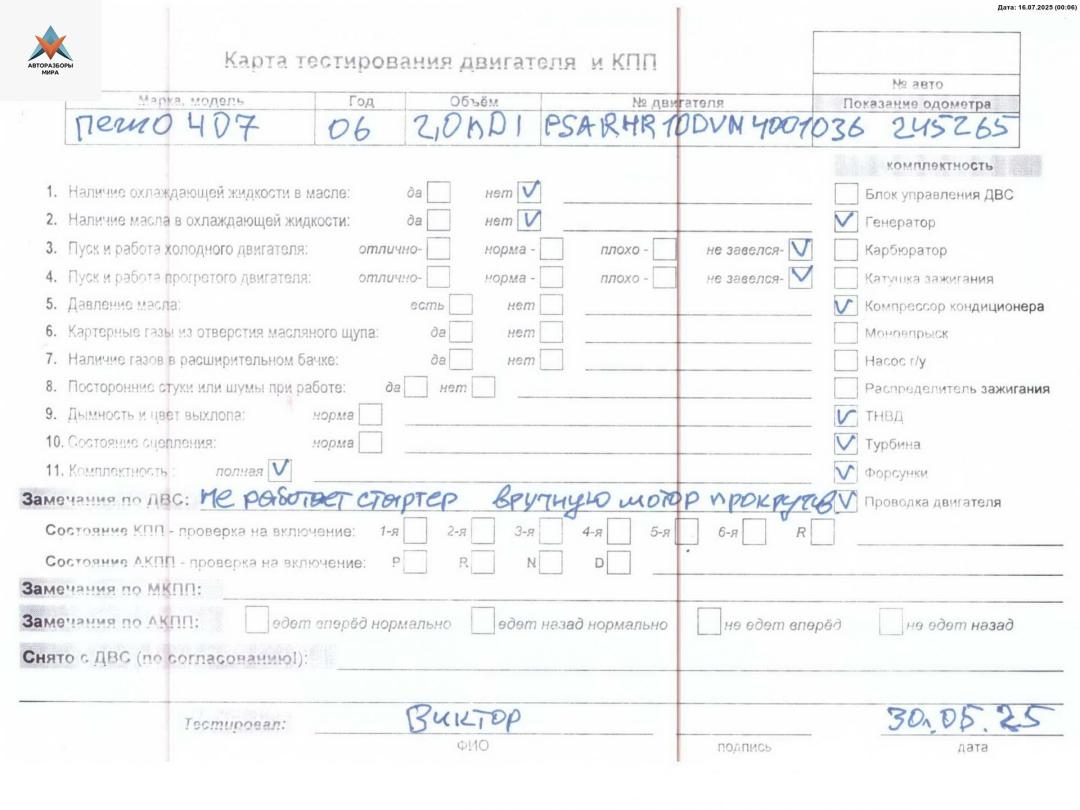 Дата: 16.07.2025 (00:06)
АВТОРАЗБОРЫ
МИРА
Карта тестирования двигателя и КПП
№ авто
Марка, модель Год Объём № двигателя Показание одометра
пежо 407 06 2,0 HDI PSARHR10DVM4001036 245265
комплектность
1. Наличие охлаждающей жидкости в масле: да нет ✓
Блок управления ДВС
2. Наличие масла в охлаждающей жидкости: да нет ✓
✓ Генератор
3. Пуск и работа холодного двигателя: отлично- норма - плохо - не завелся- ✓
Карбюратор
4. Пуск и работа прогретого двигателя: отлично- норма - плохо - не завелся- ✓
Катушка зажигания
5. Давление масла: есть нет
✓ Компрессор кондиционера
6. Картерные газы из отверстия масляного щупа: да нет
Моновпрыск
7. Наличие газов в расширительном бачке: да нет
Насос г/у
8. Посторонние стуки или шумы при работе: да нет
Распределитель зажигания
9. Дымность и цвет выхлопа: норма
✓ ТНВД
10. Состояние сцепления: норма
✓ Турбина
11. Комплектность: полная ✓
✓ Форсунки
Замечания по ДВС: Не работает стартер вручную мотор прокручив
✓ Проводка двигателя
Состояние КПП - проверка на включение: 1-я 2-я 3-я 4-я 5-я 6-я R
Состояние АКПП - проверка на включение: P R N D
Замечания по МКПП:
Замечания по АКПП: едет вперёд нормально едет назад нормально не едет вперёд не едет назад
Снято с ДВС (по согласованию!):
Тестировал: Виктор 30.05.25
ФИО подпись дата